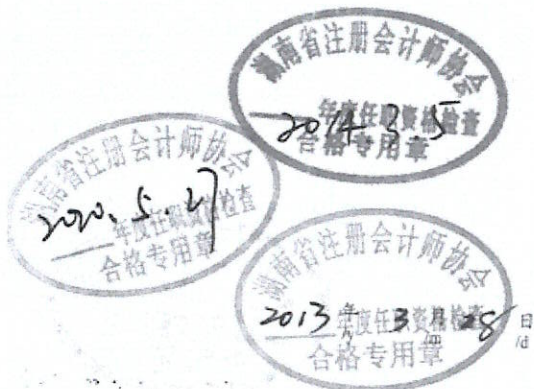 湖南省注册会计师协会
年度任职资格检查
2014.3.5
合格专用章
湖南省注册会计师协会
2020.5.27
年度任职资格检查
合格专用章
湖南省注册会计师协会
2013 年 3 月 28 日
年度任职资格检查
合格专用章